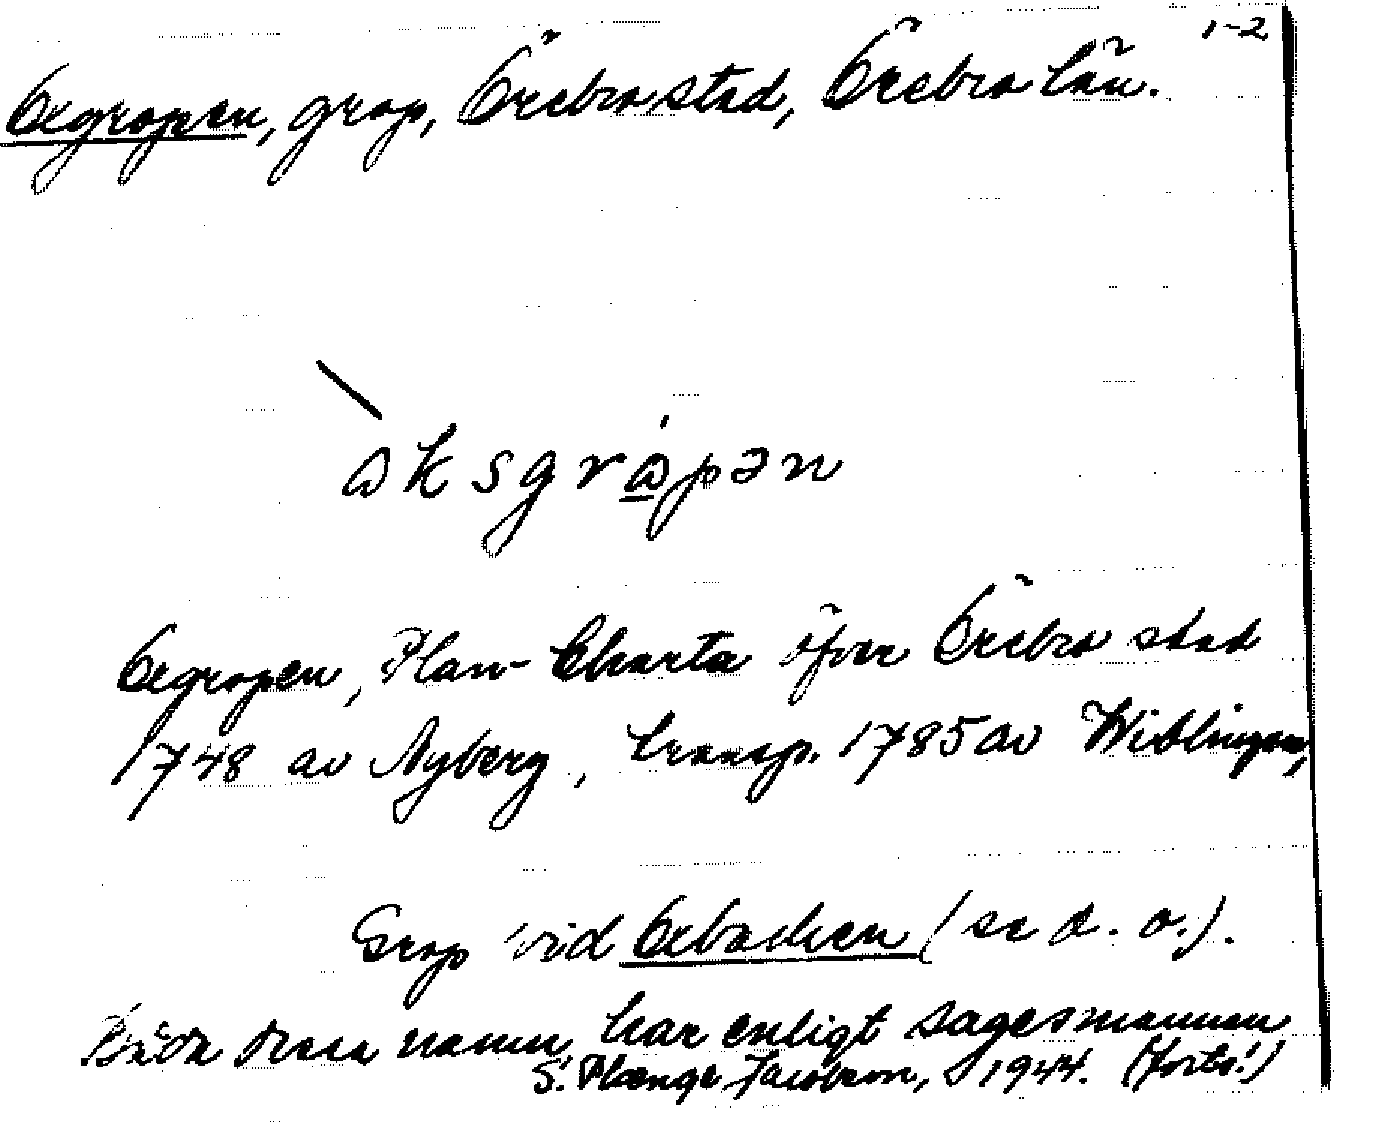 1-2
Oxgropen, grop, Örebro stad, Örebro län.
ɷksgrɷ̲́pən
Oxgropen, Plan-Charta öfver Örebro stad
1748 av Nyberg, transp. 1785 av Wiblingen,
Grop vid Oxbacken (se d. o.).
Båda dessa namn har enligt sagesmannen
S. Plænge Jacobson, 1944. (forts!)